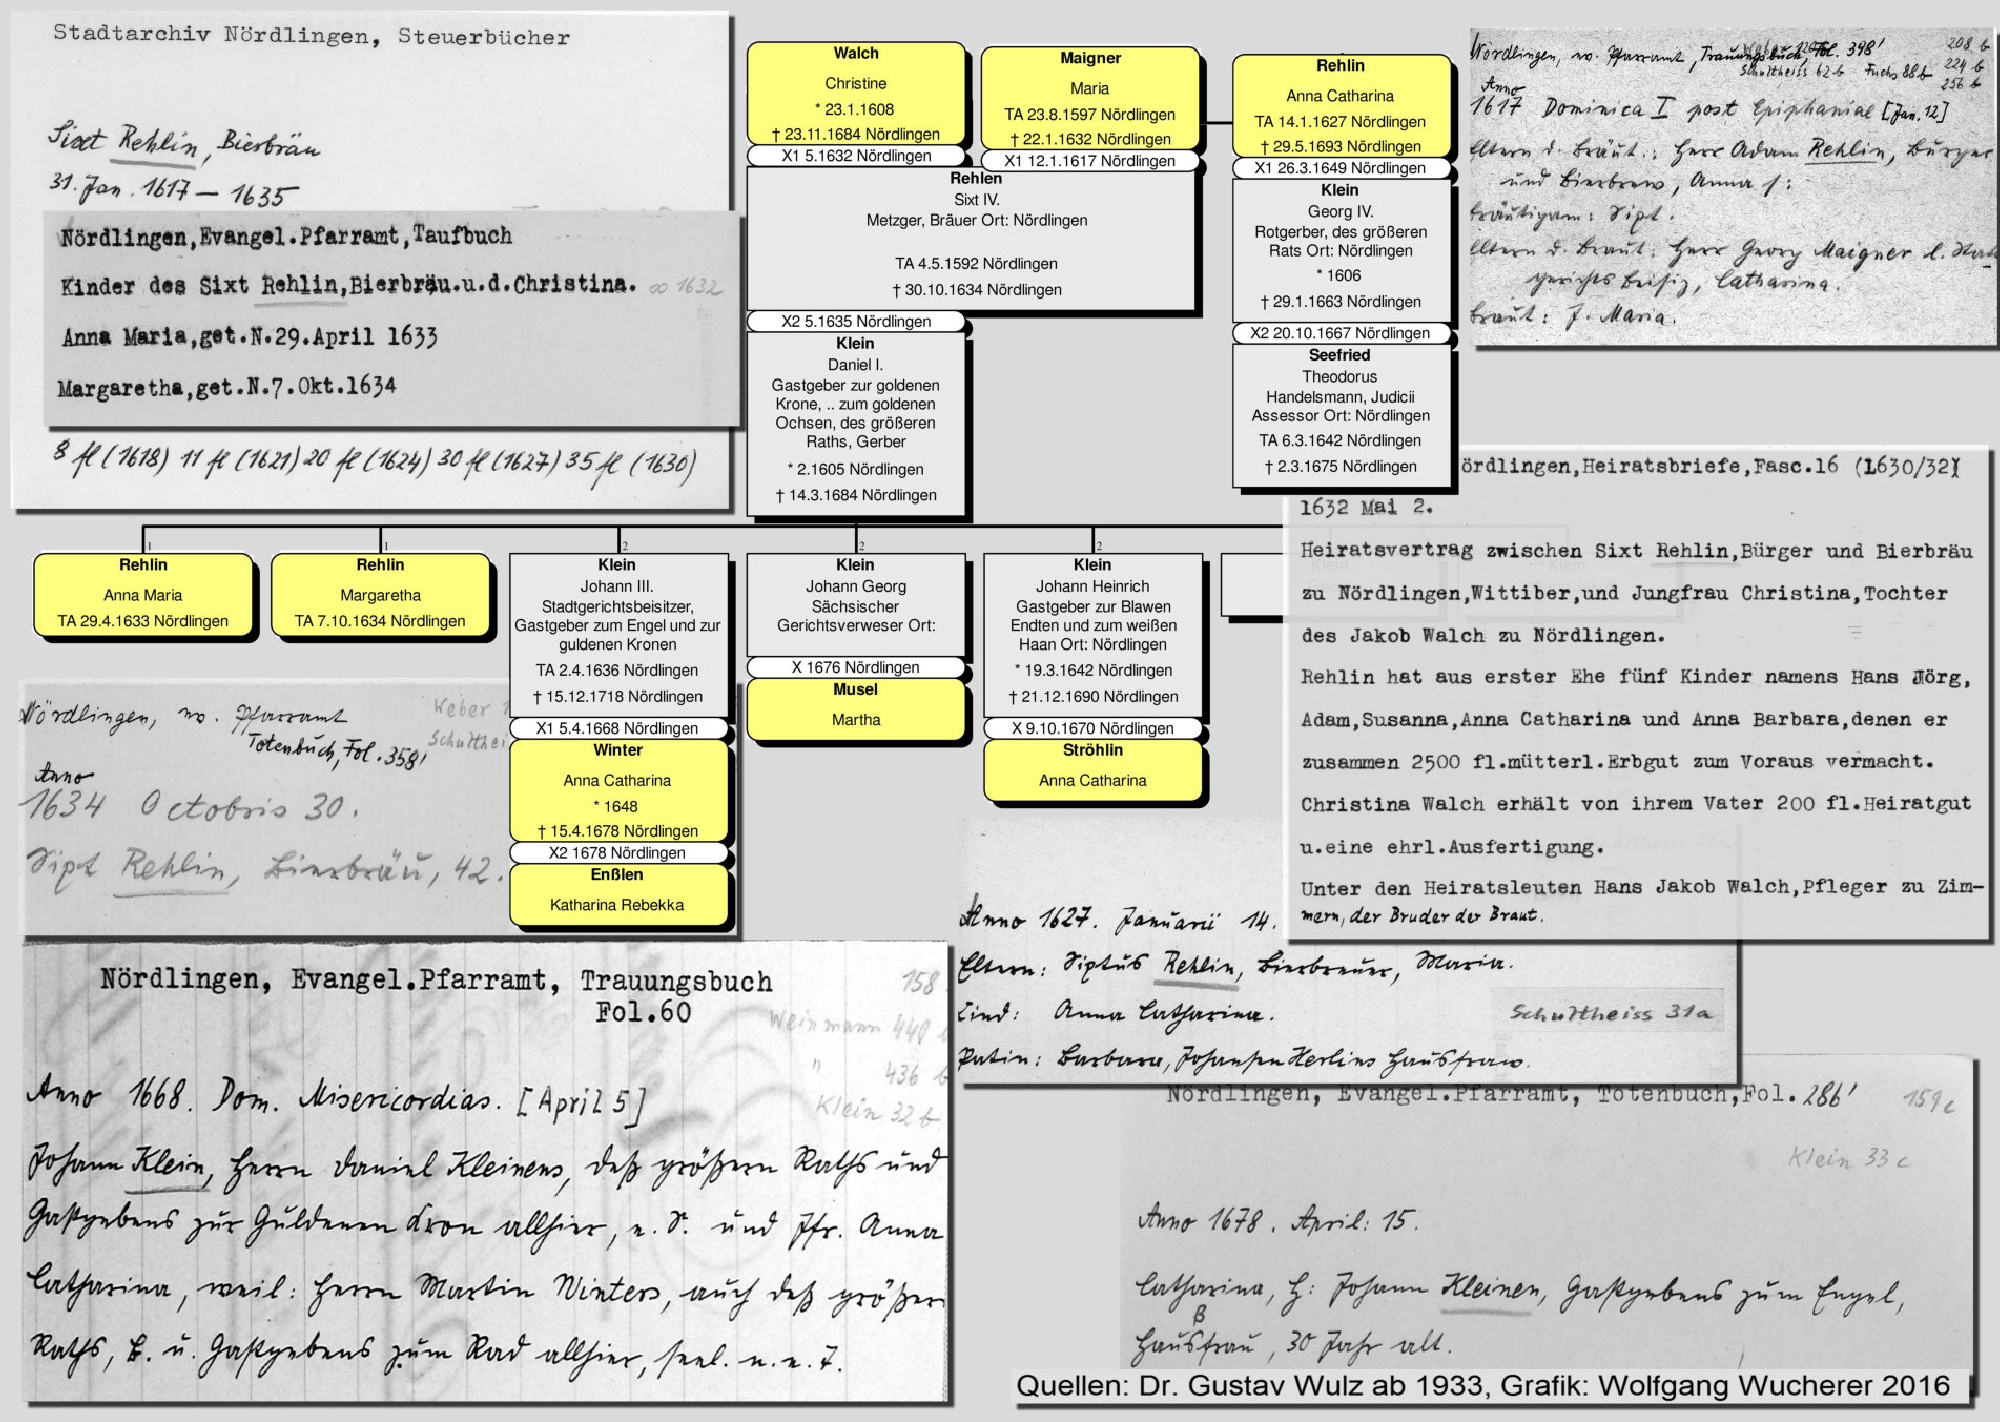 Stadtarchiv Nördlingen, Steuerbücher
Sixt Rehlin, Bierbräu
31. Jan. 1617 – 1635
Nördlingen,Evangel.Pfarramt,Taufbuch
Kinder des Sixt Rehlin,Bierbräu.u.d.Christina. ∞ 1632
Anna Maria,get.N.29.April 1633
Margaretha,get.N.7.Okt.1634
8 fl (1618) 11 fl (1621) 20 fl (1624) 30 fl (1627) 35 fl (1630)
Walch
Christine
* 23.1.1608
† 23.11.1684 Nördlingen
X1 5.1632 Nördlingen
Maigner
Maria
TA 23.8.1597 Nördlingen
† 22.1.1632 Nördlingen
X1 12.1.1617 Nördlingen
Rehlen
Sixt IV.
Metzger, Bräuer Ort: Nördlingen
TA 4.5.1592 Nördlingen
† 30.10.1634 Nördlingen
X2 5.1635 Nördlingen
Klein
Daniel I.
Gastgeber zur goldenen
Krone, .. zum goldenen
Ochsen, des größeren
Raths, Gerber
* 2.1605 Nördlingen
† 14.3.1684 Nördlingen
Rehlin
Anna Catharina
TA 14.1.1627 Nördlingen
† 29.5.1693 Nördlingen
X1 26.3.1649 Nördlingen
Klein
Georg IV.
Rotgerber, des größeren
Rats Ort: Nördlingen
* 1606
† 29.1.1663 Nördlingen
X2 20.10.1667 Nördlingen
Seefried
Theodorus
Handelsmann, Judicii
Assessor Ort: Nördlingen
TA 6.3.1642 Nördlingen
† 2.3.1675 Nördlingen
Nördlingen, ev. Pfarramt, Trauungsbuch, Fol. 398'
208 b
Schultheiss 62 b Fuchs 88 b
224 b
256 b
Anno
1617 Dominica I post Epiphaniae [Jan. 12]
Eltern d. Bräut.: Herr Adam Rehlin, Burger
und Bierbrew, Anna f:
Bräutigam: Sixt.
Eltern d. Braut: Herr Georg Maigner d.
gerichts Beisiz, Catharina.
Braut: J. Maria.
1
Rehlin
Anna Maria
TA 29.4.1633 Nördlingen
1
Rehlin
Margaretha
TA 7.10.1634 Nördlingen
2
Klein
Johann III.
Stadtgerichtsbeisitzer,
Gastgeber zum Engel und zur
guldenen Kronen
TA 2.4.1636 Nördlingen
† 15.12.1718 Nördlingen
X1 5.4.1668 Nördlingen
Winter
Anna Catharina
* 1648
† 15.4.1678 Nördlingen
X2 1678 Nördlingen
Enßlen
Katharina Rebekka
2
Klein
Johann Georg
Sächsischer
Gerichtsverweser Ort:
X 1676 Nördlingen
Musel
Martha
2
Klein
Johann Heinrich
Gastgeber zur Blawen
Endten und zum weißen
Haan Ort: Nördlingen
* 19.3.1642 Nördlingen
† 21.12.1690 Nördlingen
X 9.10.1670 Nördlingen
Ströhlin
Anna Catharina
ördlingen,Heiratsbriefe,Fasc.16 (1630/32)
1632 Mai 2.
Heiratsvertrag zwischen Sixt Rehlin,Bürger und Bierbräu
zu Nördlingen,Wittiber,und Jungfrau Christina,Tochter
des Jakob Walch zu Nördlingen.
Rehlin hat aus erster Ehe fünf Kinder namens Hans Jörg,
Adam,Susanna,Anna Catharina und Anna Barbara,denen er
zusammen 2500 fl.mütterl.Erbgut zum Voraus vermacht.
Christina Walch erhält von ihrem Vater 200 fl.Heiratgut
u.eine ehrl.Ausfertigung.
Unter den Heiratsleuten Hans Jakob Walch,Pfleger zu Zim-
mern, der Bruder der Braut.
Nördlingen, ev. Pfarramt
Weber 1
Totenbuch, Fol. 358'
Schulthei
Anno
1634 Octobris 30.
Sixt Rehlin, Bierbräu, 42.
Anno 1627. Januarii 14.
Eltern: Sixtus Rehlin, Bierbreuer, Maria.
Kind: Anna Catharina.
Schultheiss 31a
Patin: Barbara, Johansen Herlins Hausfraw.
Nördlingen, Evangel.Pfarramt, Trauungsbuch
Fol.60
158
Weinmann 448
" 436 b
Klein 32 b
Anno 1668. Dom. Misericordias. [April 5]
Johann Klein, Herrn Daniel Kleinens, deß größern Raths und
Gastgebens zur Güldenen Kron allhier, e. S. und Jfr. Anna
Catharina, weil: Herrn Martin Winters, auch deß größern
Raths, B. u. Gastgebens zum Rad allhier, seel. n. e. T.
Nördlingen, Evangel.Pfarramt, Totenbuch,Fol. 286'
159 c
Klein 33 c
Anno 1678. April: 15.
Catharina, H: Johann Kleinen, Gastgebens zum Engel,
Hausfrau, 30 Jahr alt.
Quellen: Dr. Gustav Wulz ab 1933, Grafik: Wolfgang Wucherer 2016